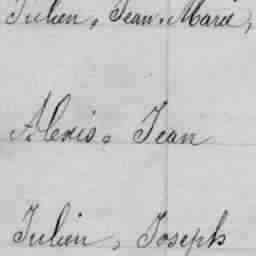 Julien, Jean-Marie,
Alexis, Jean
Julien, Joseph